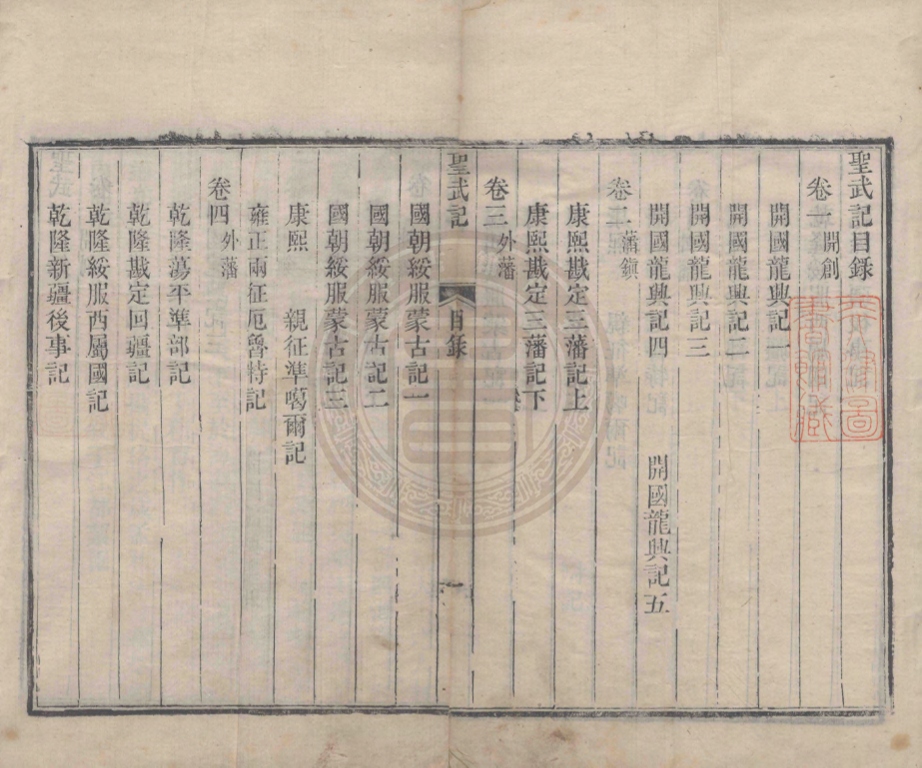 聖武記目錄
卷一 開創
開國龍興記一
開國龍興記二
開國龍興記三
開國龍興記四 開國龍興記五
卷二 藩鎮
康熙戡定三藩記上
康熙戡定三藩記下
卷三 外藩
聖武記 目錄 一
國朝綏服蒙古記一
國朝綏服蒙古記二
國朝綏服蒙古記三
康熙 親征準噶爾記
雍正兩征厄魯特記
卷四 外藩
乾隆蕩平準部記
乾隆戡定回疆記
乾隆綏服西屬國記
乾隆新疆後事記